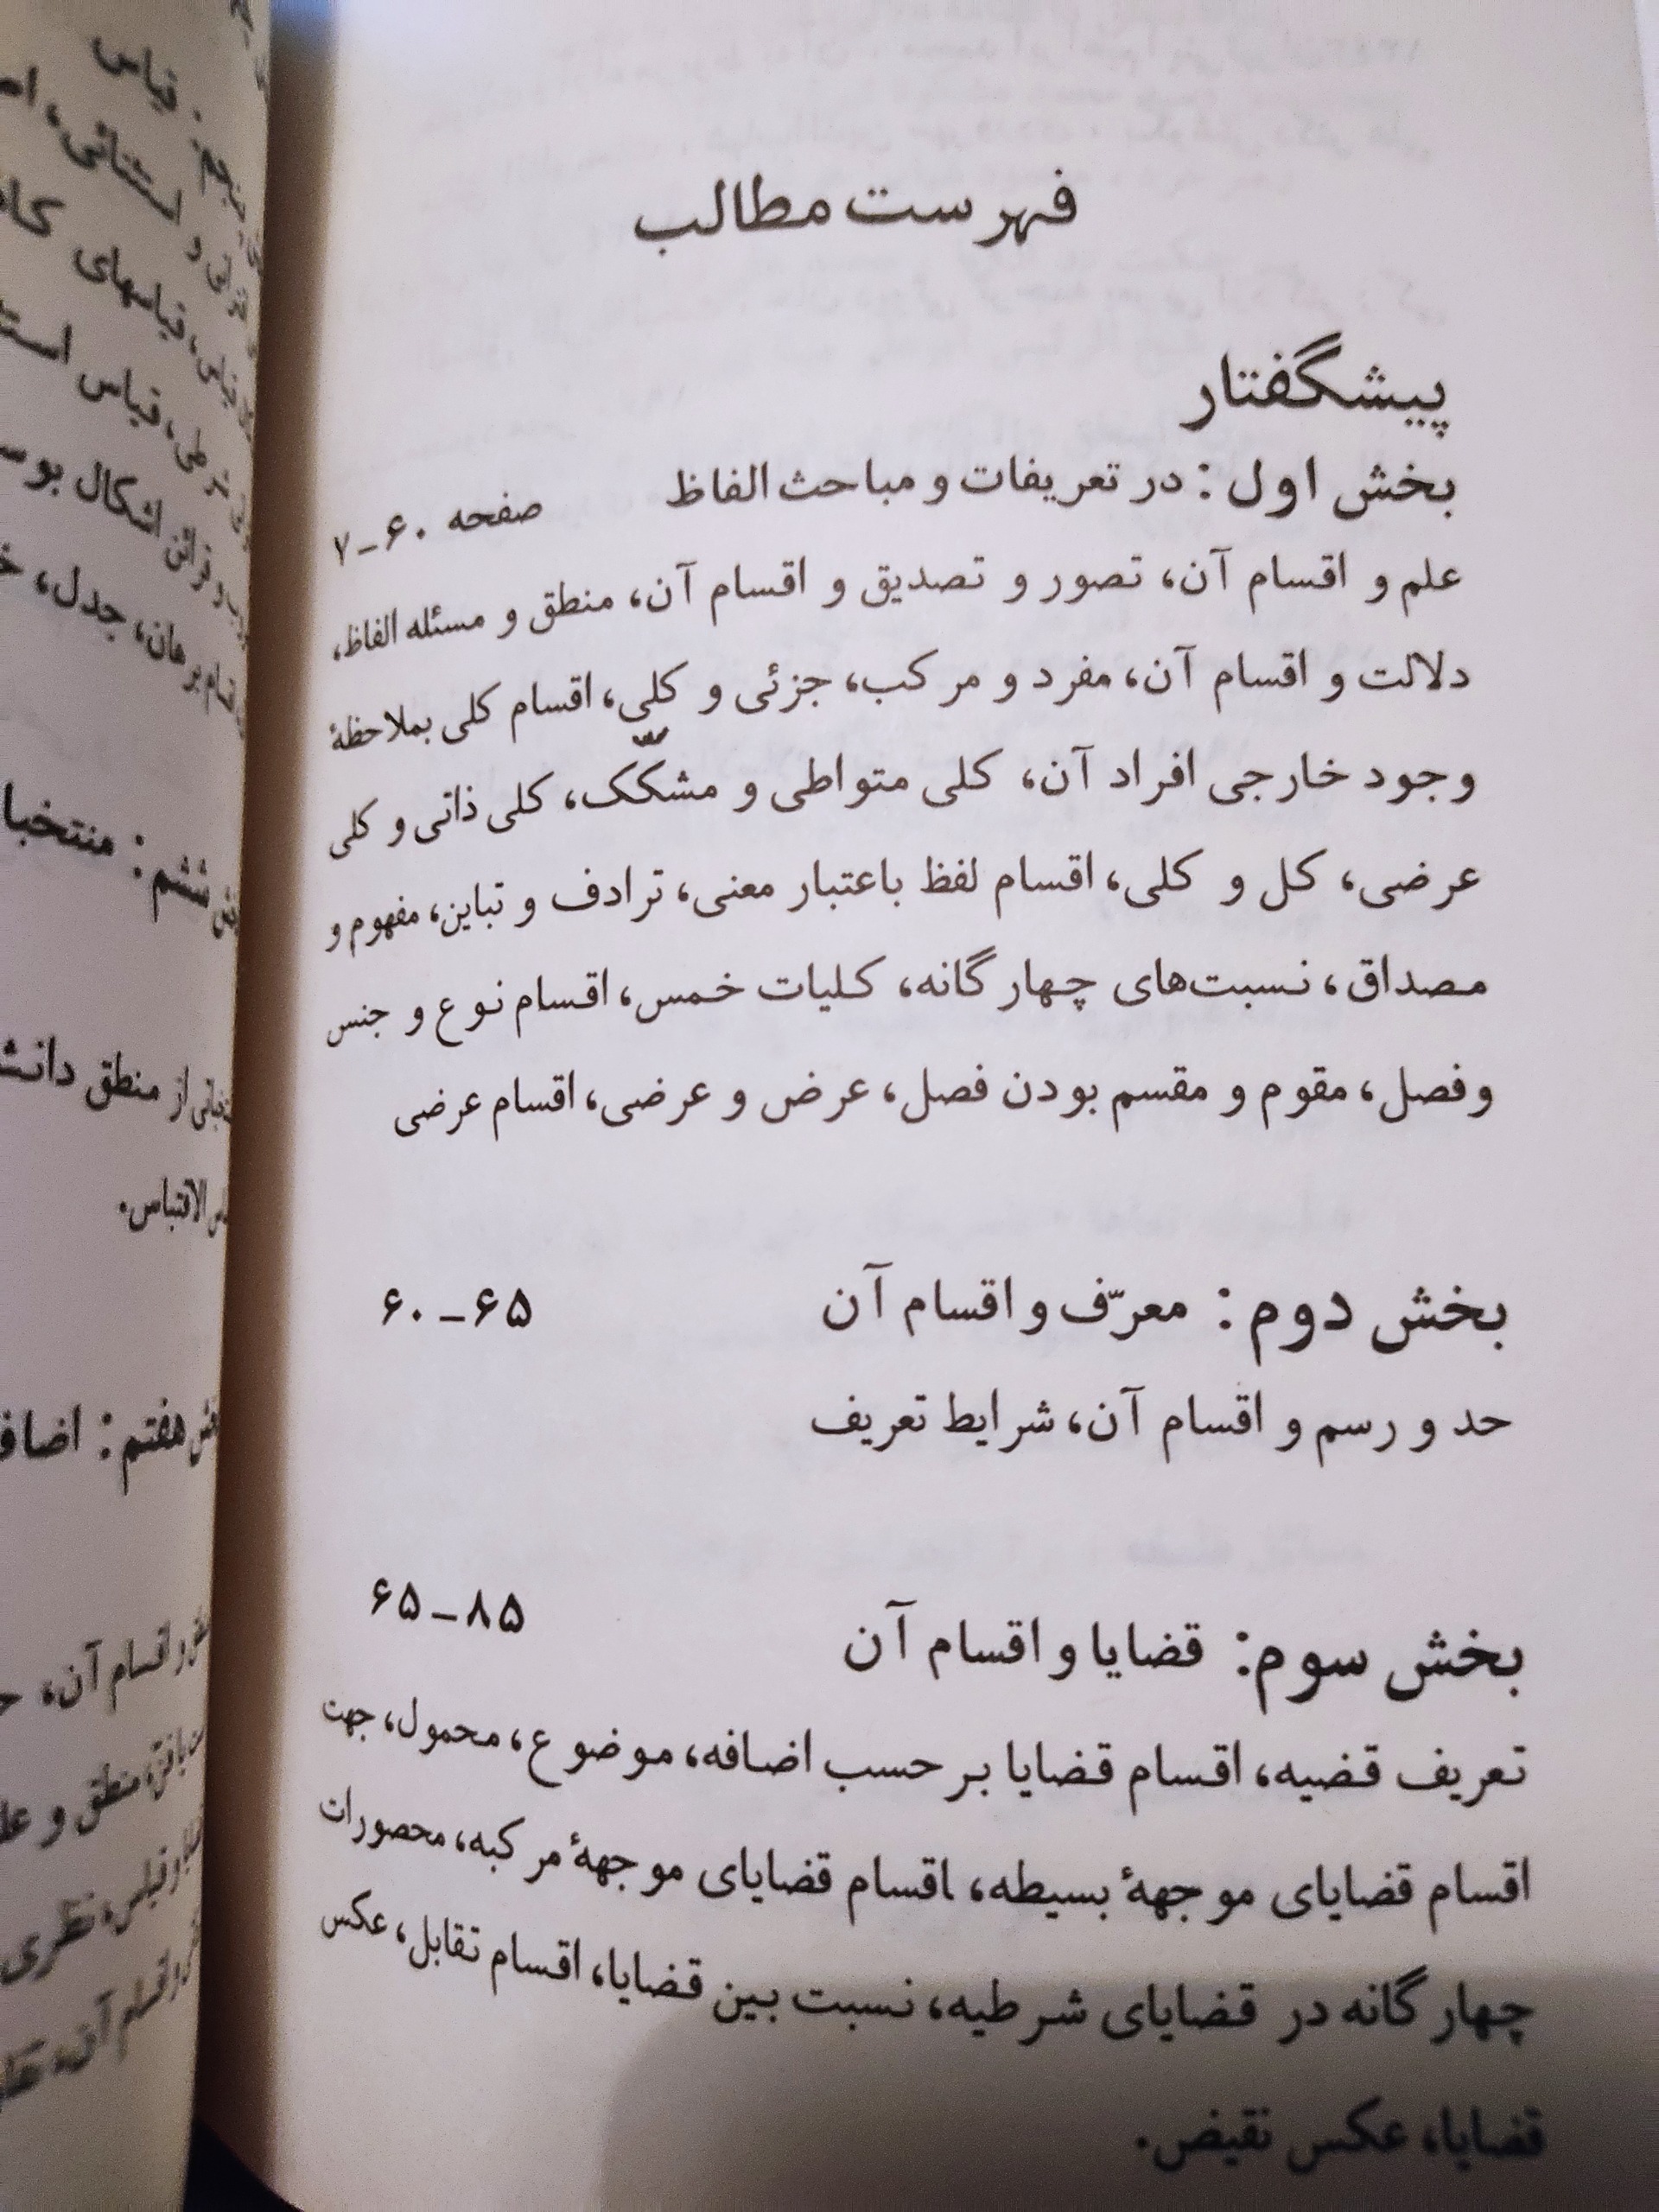 فهرست مطالب
پیشگفتار
بخش اول: در تعریفات و مباحث الفاظ صفحه ۶۰-۷
علم و اقسام آن، تصور و تصدیق و اقسام آن، منطق و مسئله الفاظ،
دلالت و اقسام آن، مفرد و مرکب، جزئی و کلی، اقسام کلی بملاحظهٔ
وجود خارجی افراد آن، کلی متواطی و مشکّک، کلی ذاتی و کلی
عرضی، کل و کلی، اقسام لفظ باعتبار معنی، ترادف و تباین، مفهوم و
مصداق، نسبت‌های چهارگانه، کلیات خمس، اقسام نوع و جنس
وفصل، مقوم و مقسم بودن فصل، عرض و عرضی، اقسام عرضی
بخش دوم: معرّف و اقسام آن ۶۵-۶۰
حد و رسم و اقسام آن، شرایط تعریف
بخش سوم: قضایا و اقسام آن ۸۵-۶۵
تعریف قضیه، اقسام قضایا بر حسب اضافه، موضوع، محمول، جهت
اقسام قضایای موجههٔ بسیطه، اقسام قضایای موجههٔ مرکبه، محصورات
چهارگانه در قضایای شرطیه، نسبت بین قضایا، اقسام تقابل، عکس
قضایا، عکس نقیض.
قیاس
استثنائی،
قیاس، قیاسهای
شرطی، قیاس
قرائن اشکال
برهان، جدل،
ششم:
از منطق
الاقتباس.
هفتم:
و اقسام آن،
منطق و
نظری
و اقسام آن،